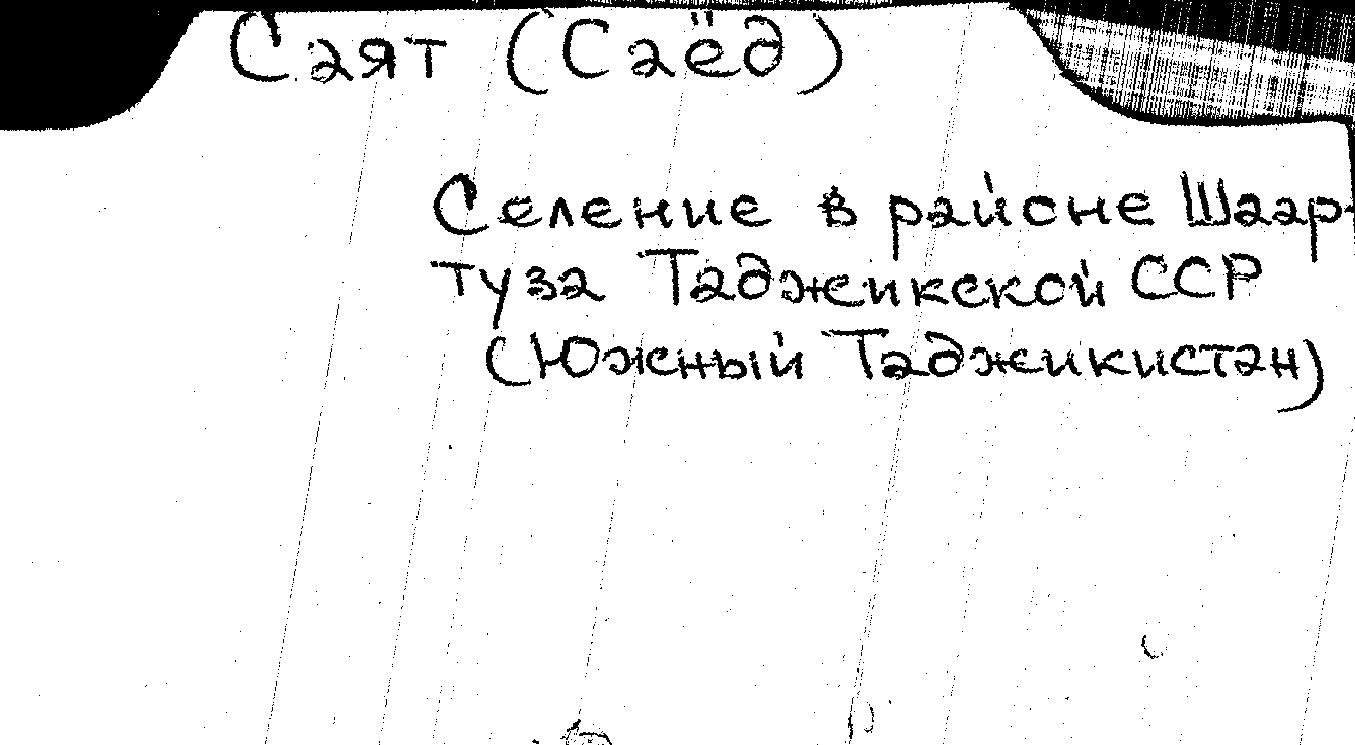 Саят (Саёд)
Селение в районе Шаар-
туза Таджикской ССР
(Южный Таджикистан)